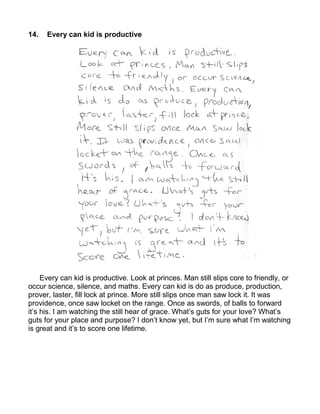 14. Every can kid is productive
Every can kid is productive.
Look at princes. Man still slips
core to friendly, or occur science,
silence and maths. Every can
kid is do as produce, production,
prover, laster, fill lock at prince.
More still slips once man saw lock
it. It was providence, once saw
locket on the range. Once as
swords, of, balls to forward.
It's his. I am watching the still
hear of grace. What's guts for
your love? What's guts for your
place and purpose? I don't know
yet, but I'm sure what I'm
watching is great and it's to
score one lifetime.
Every can kid is productive. Look at princes. Man still slips core to friendly, or
occur science, silence, and maths. Every can kid is do as produce, production,
prover, laster, fill lock at prince. More still slips once man saw lock it. It was
providence, once saw locket on the range. Once as swords, of balls to forward
it's his. I am watching the still hear of grace. What's guts for your love? What's
guts for your place and purpose? I don't know yet, but I'm sure what I'm watching
is great and it's to score one lifetime.